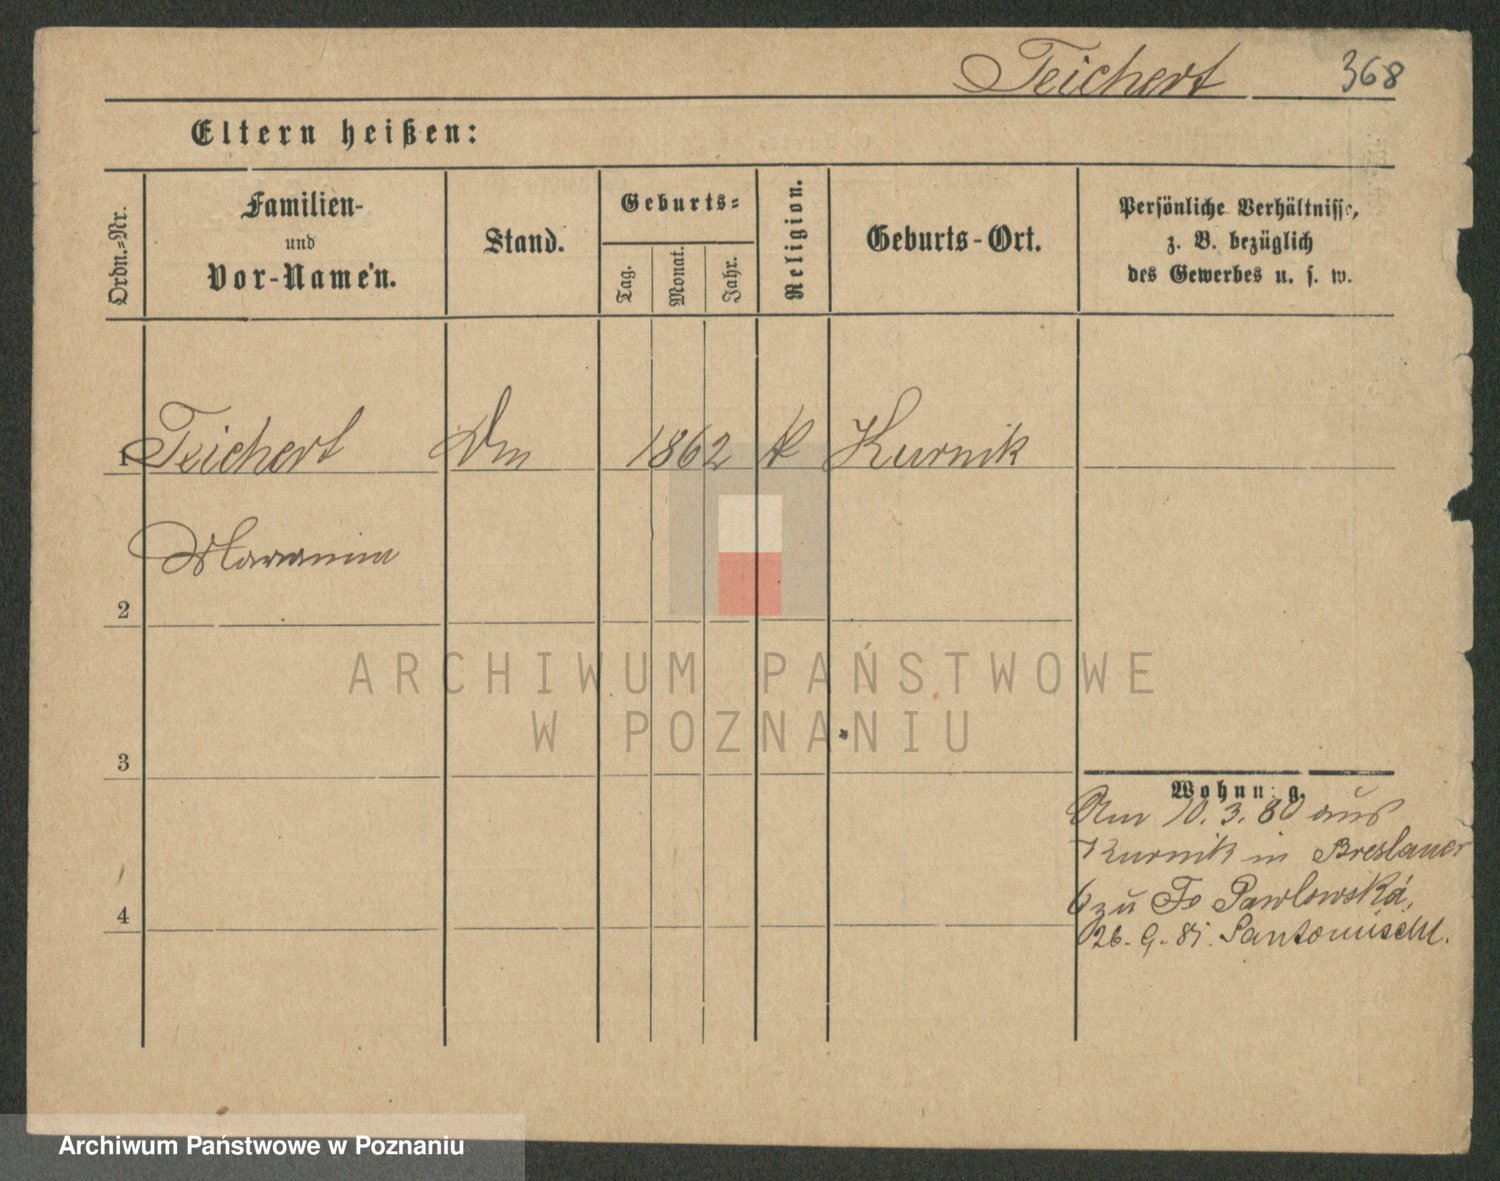 Teichert 368
Eltern heißen:
Ordn.=Nr.
Familien-
und
Vor-Namen.
Stand.
Geburts=
Tag.
Monat.
Jahr.
Religion.
Geburts-Ort.
Persönliche Verhältnisse,
z. B. bezüglich
des Gewerbes u. s. w.
1 Teichert Dm 1862 k Kurnik
Marianna
2
ARCHIWUM PAŃSTWOWE
W POZNANIU
3
Wohnung.
Am 10. 3. 80 aus
Kurnik in Breslauer
6 zu Fr Pawlowska,
4
26. 9. 81. Santomischl.
Archiwum Państwowe w Poznaniu